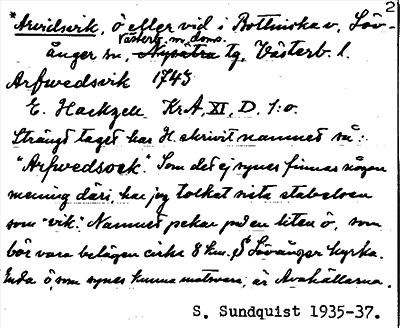 2
*Arvidsvik, ö eller vid i Bottniska v. Löv-
Västerb. n. doms.
ånger sn, Nysätra tg. Västerb. l.
Arfwedsvik 1743
E. Hackzell KrA, XI, D, 1:o.
Strängt taget har H. skrivit namnet så:
"Arfwedsock". Som det ej synes finnas någon
mening däri har jag tolkat sista stavelsen
som "vik". Namnet pekar på en liten ö, som
bör vara belägen cirka 8 km. S Lövånger kyrka.
Enda ö, som synes kunna motsvara, är Avahällarna.
S. Sundquist 1935-37.